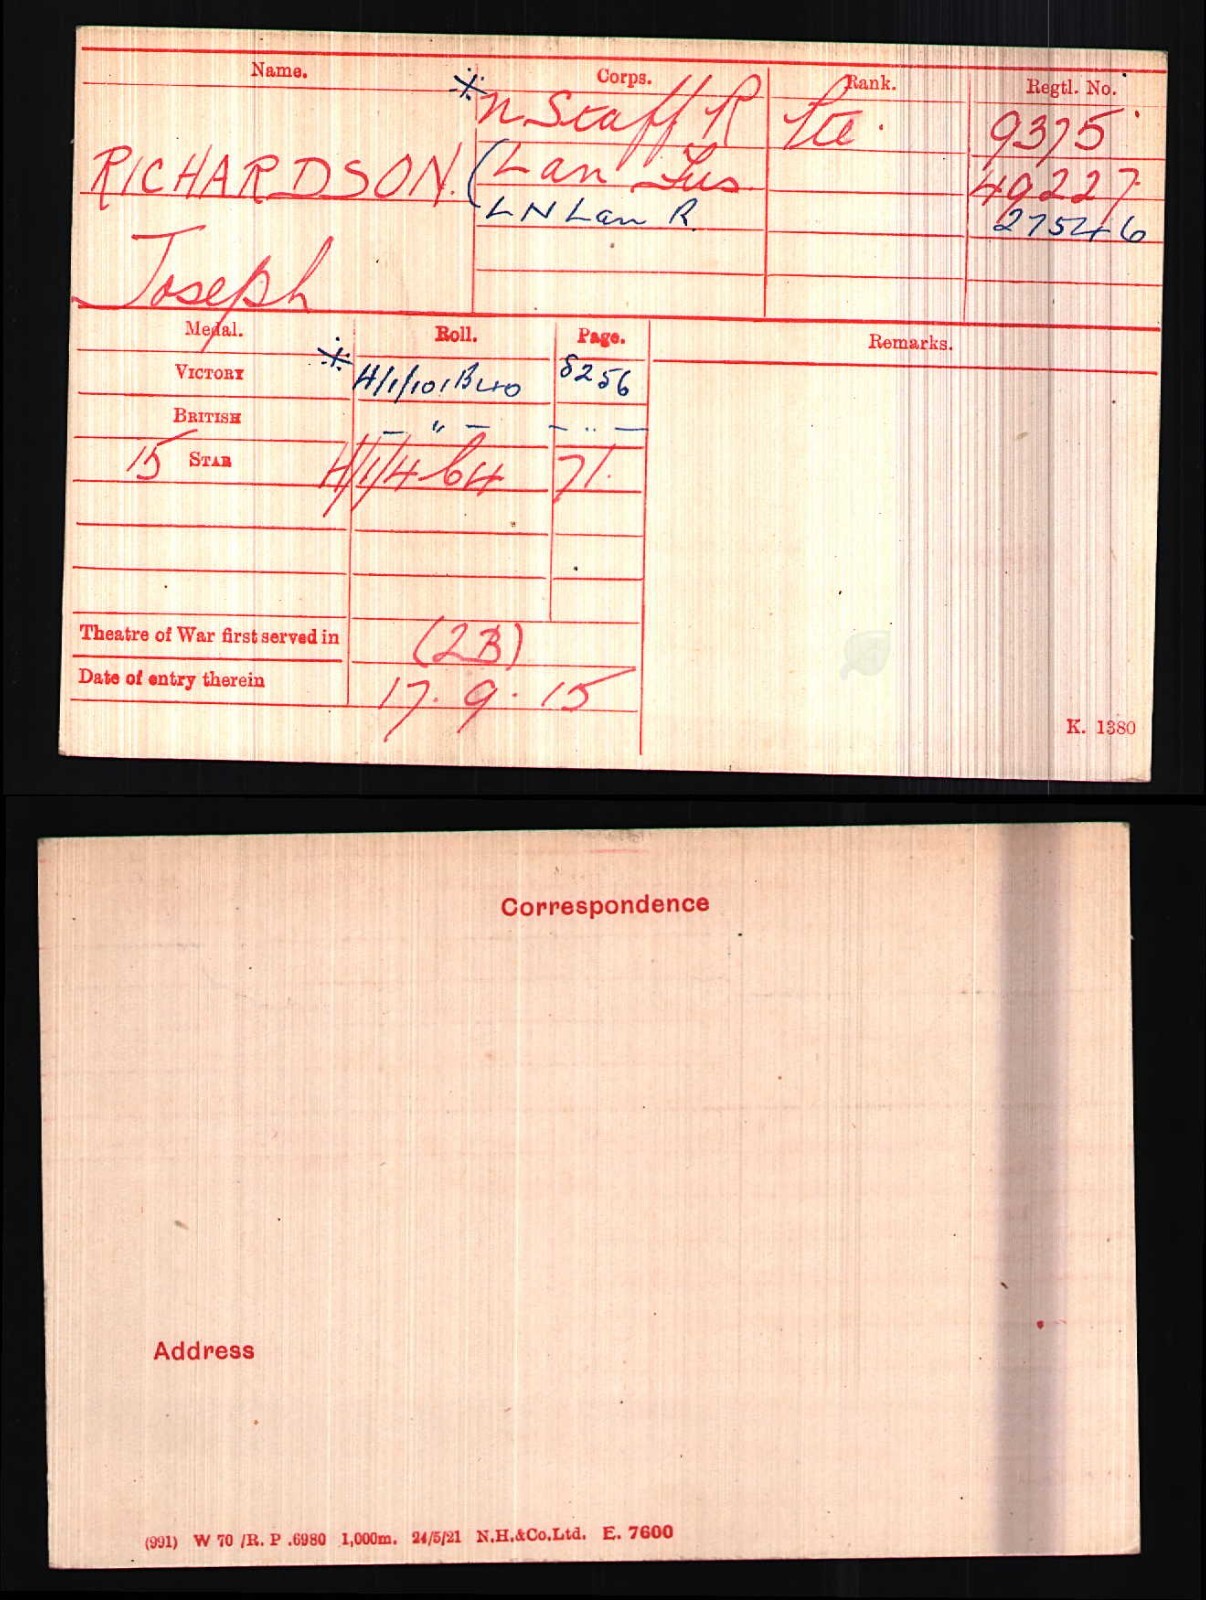 Name. Corps. Rank. Regtl. No.
* N Staff R Pte. 9375
RICHARDSON. (Lan Fus 49227
LN Lan R. 27546
Joseph
Medal. Roll. Page. Remarks.
VICTORY * H/1/101B40 8256
BRITISH — " — — " —
15 STAR H/1/4 B4 71.
Theatre of War first served in (2B)
Date of entry therein 17. 9. 15
K. 1380
Correspondence
Address
(991) W 70 /R. P .6980 1,000m. 24/5/21 N.H.&Co.Ltd. E. 7600